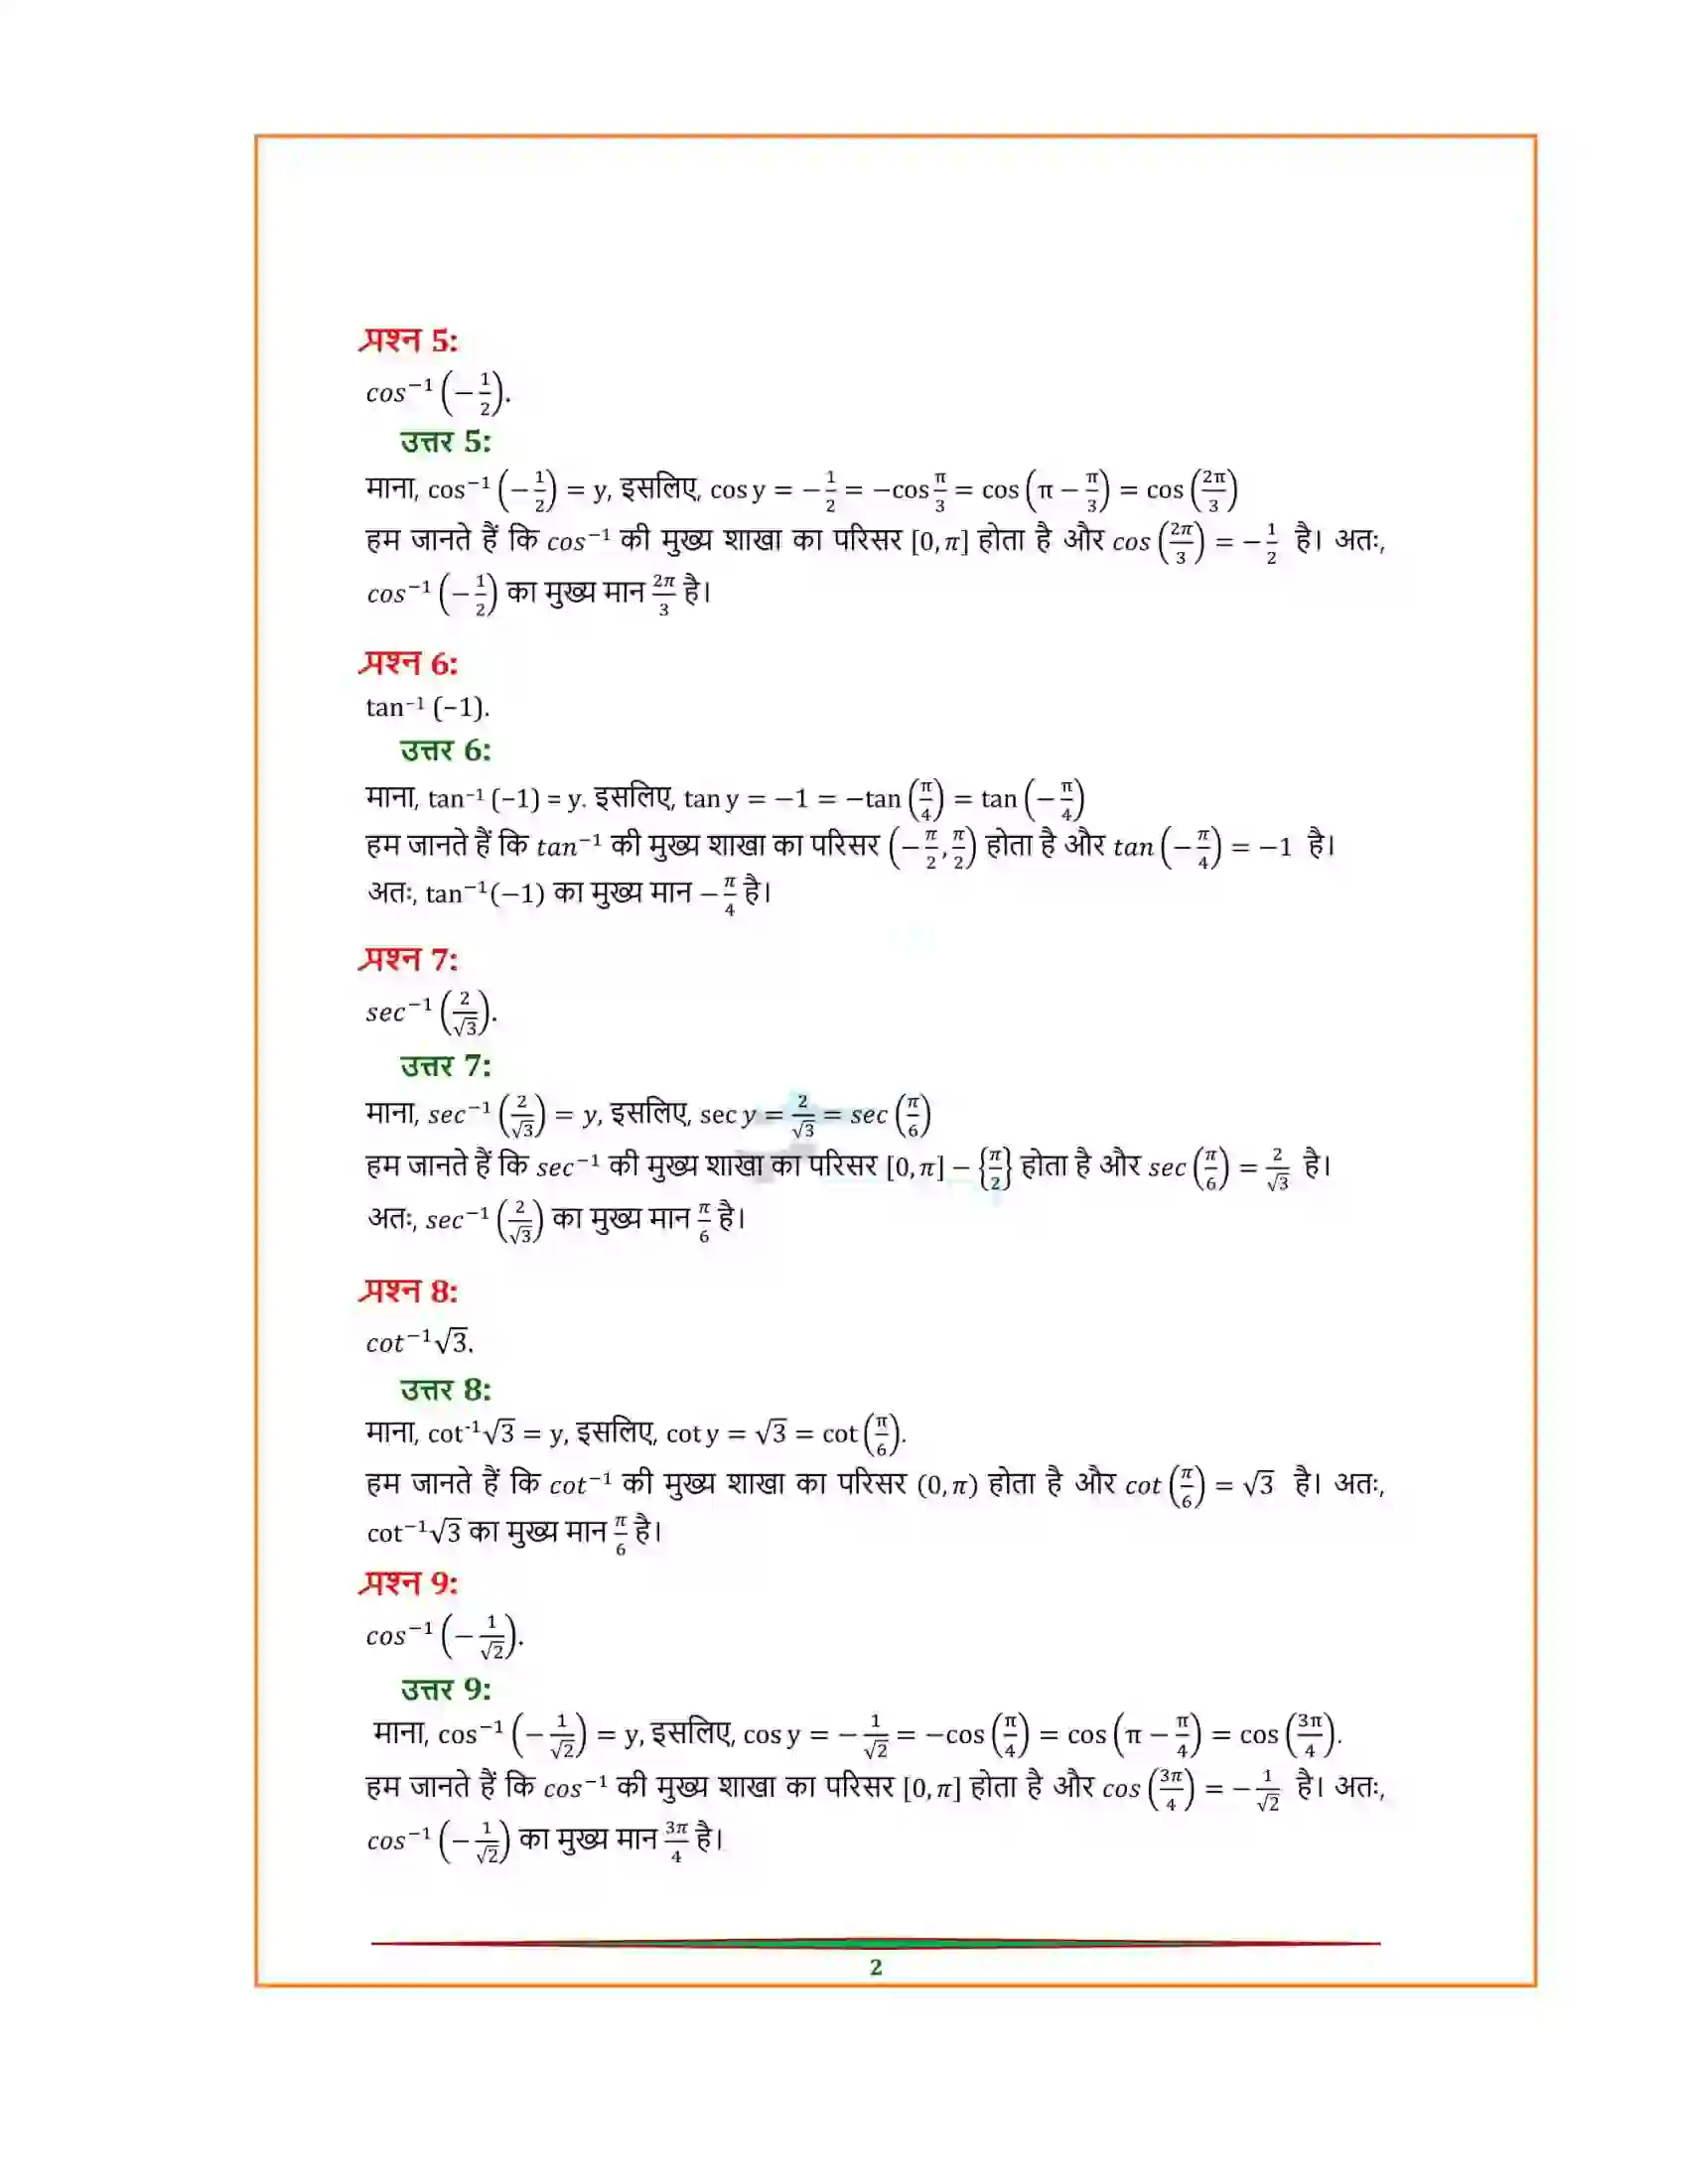 प्रश्न 5:
cos⁻¹ (−1/2).
उत्तर 5:
माना, cos⁻¹ (−1/2) = y, इसलिए, cos y = −1/2 = −cos π/3 = cos (π − π/3) = cos (2π/3)
हम जानते हैं कि cos⁻¹ की मुख्य शाखा का परिसर [0, π] होता है और cos (2π/3) = −1/2 है। अतः,
cos⁻¹ (−1/2) का मुख्य मान 2π/3 है।
प्रश्न 6:
tan⁻¹ (−1).
उत्तर 6:
माना, tan⁻¹ (−1) = y. इसलिए, tan y = −1 = −tan (π/4) = tan (−π/4)
हम जानते हैं कि tan⁻¹ की मुख्य शाखा का परिसर (−π/2, π/2) होता है और tan (−π/4) = −1 है।
अतः, tan⁻¹(−1) का मुख्य मान −π/4 है।
प्रश्न 7:
sec⁻¹ (2/√3).
उत्तर 7:
माना, sec⁻¹ (2/√3) = y, इसलिए, sec y = 2/√3 = sec (π/6)
हम जानते हैं कि sec⁻¹ की मुख्य शाखा का परिसर [0, π] − {π/2} होता है और sec (π/6) = 2/√3 है।
अतः, sec⁻¹ (2/√3) का मुख्य मान π/6 है।
प्रश्न 8:
cot⁻¹√3.
उत्तर 8:
माना, cot⁻¹√3 = y, इसलिए, cot y = √3 = cot (π/6).
हम जानते हैं कि cot⁻¹ की मुख्य शाखा का परिसर (0, π) होता है और cot (π/6) = √3 है। अतः,
cot⁻¹√3 का मुख्य मान π/6 है।
प्रश्न 9:
cos⁻¹ (−1/√2).
उत्तर 9:
माना, cos⁻¹ (−1/√2) = y, इसलिए, cos y = −1/√2 = −cos (π/4) = cos (π − π/4) = cos (3π/4).
हम जानते हैं कि cos⁻¹ की मुख्य शाखा का परिसर [0, π] होता है और cos (3π/4) = −1/√2 है। अतः,
cos⁻¹ (−1/√2) का मुख्य मान 3π/4 है।
2